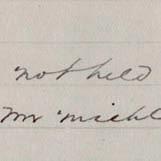 not held
Mr Michl